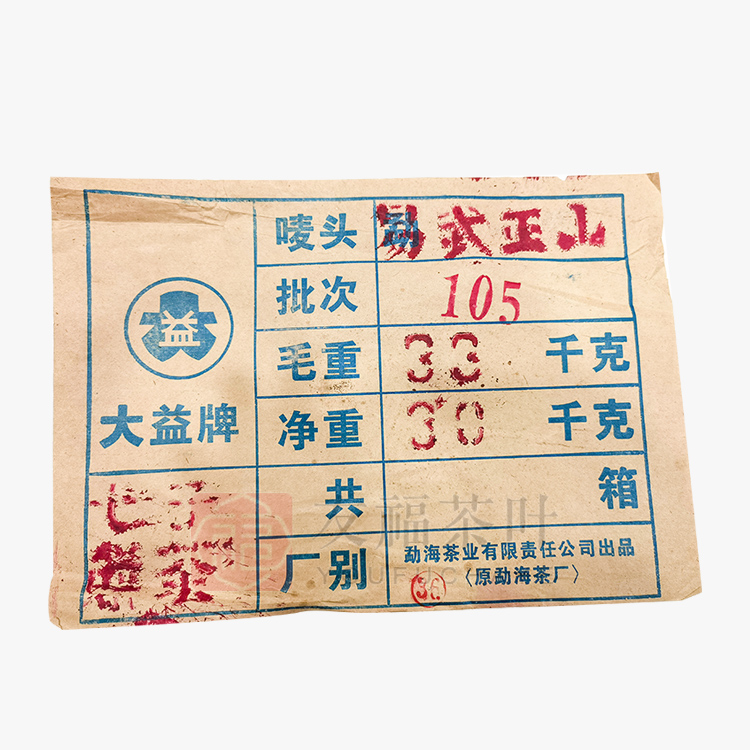 益
大益牌
七子
唛头 易武正山
批次 105
毛重 33 千克
净重 30 千克
共 箱
厂别 勐海茶业有限责任公司出品
〈原勐海茶厂〉
36
友福茶叶